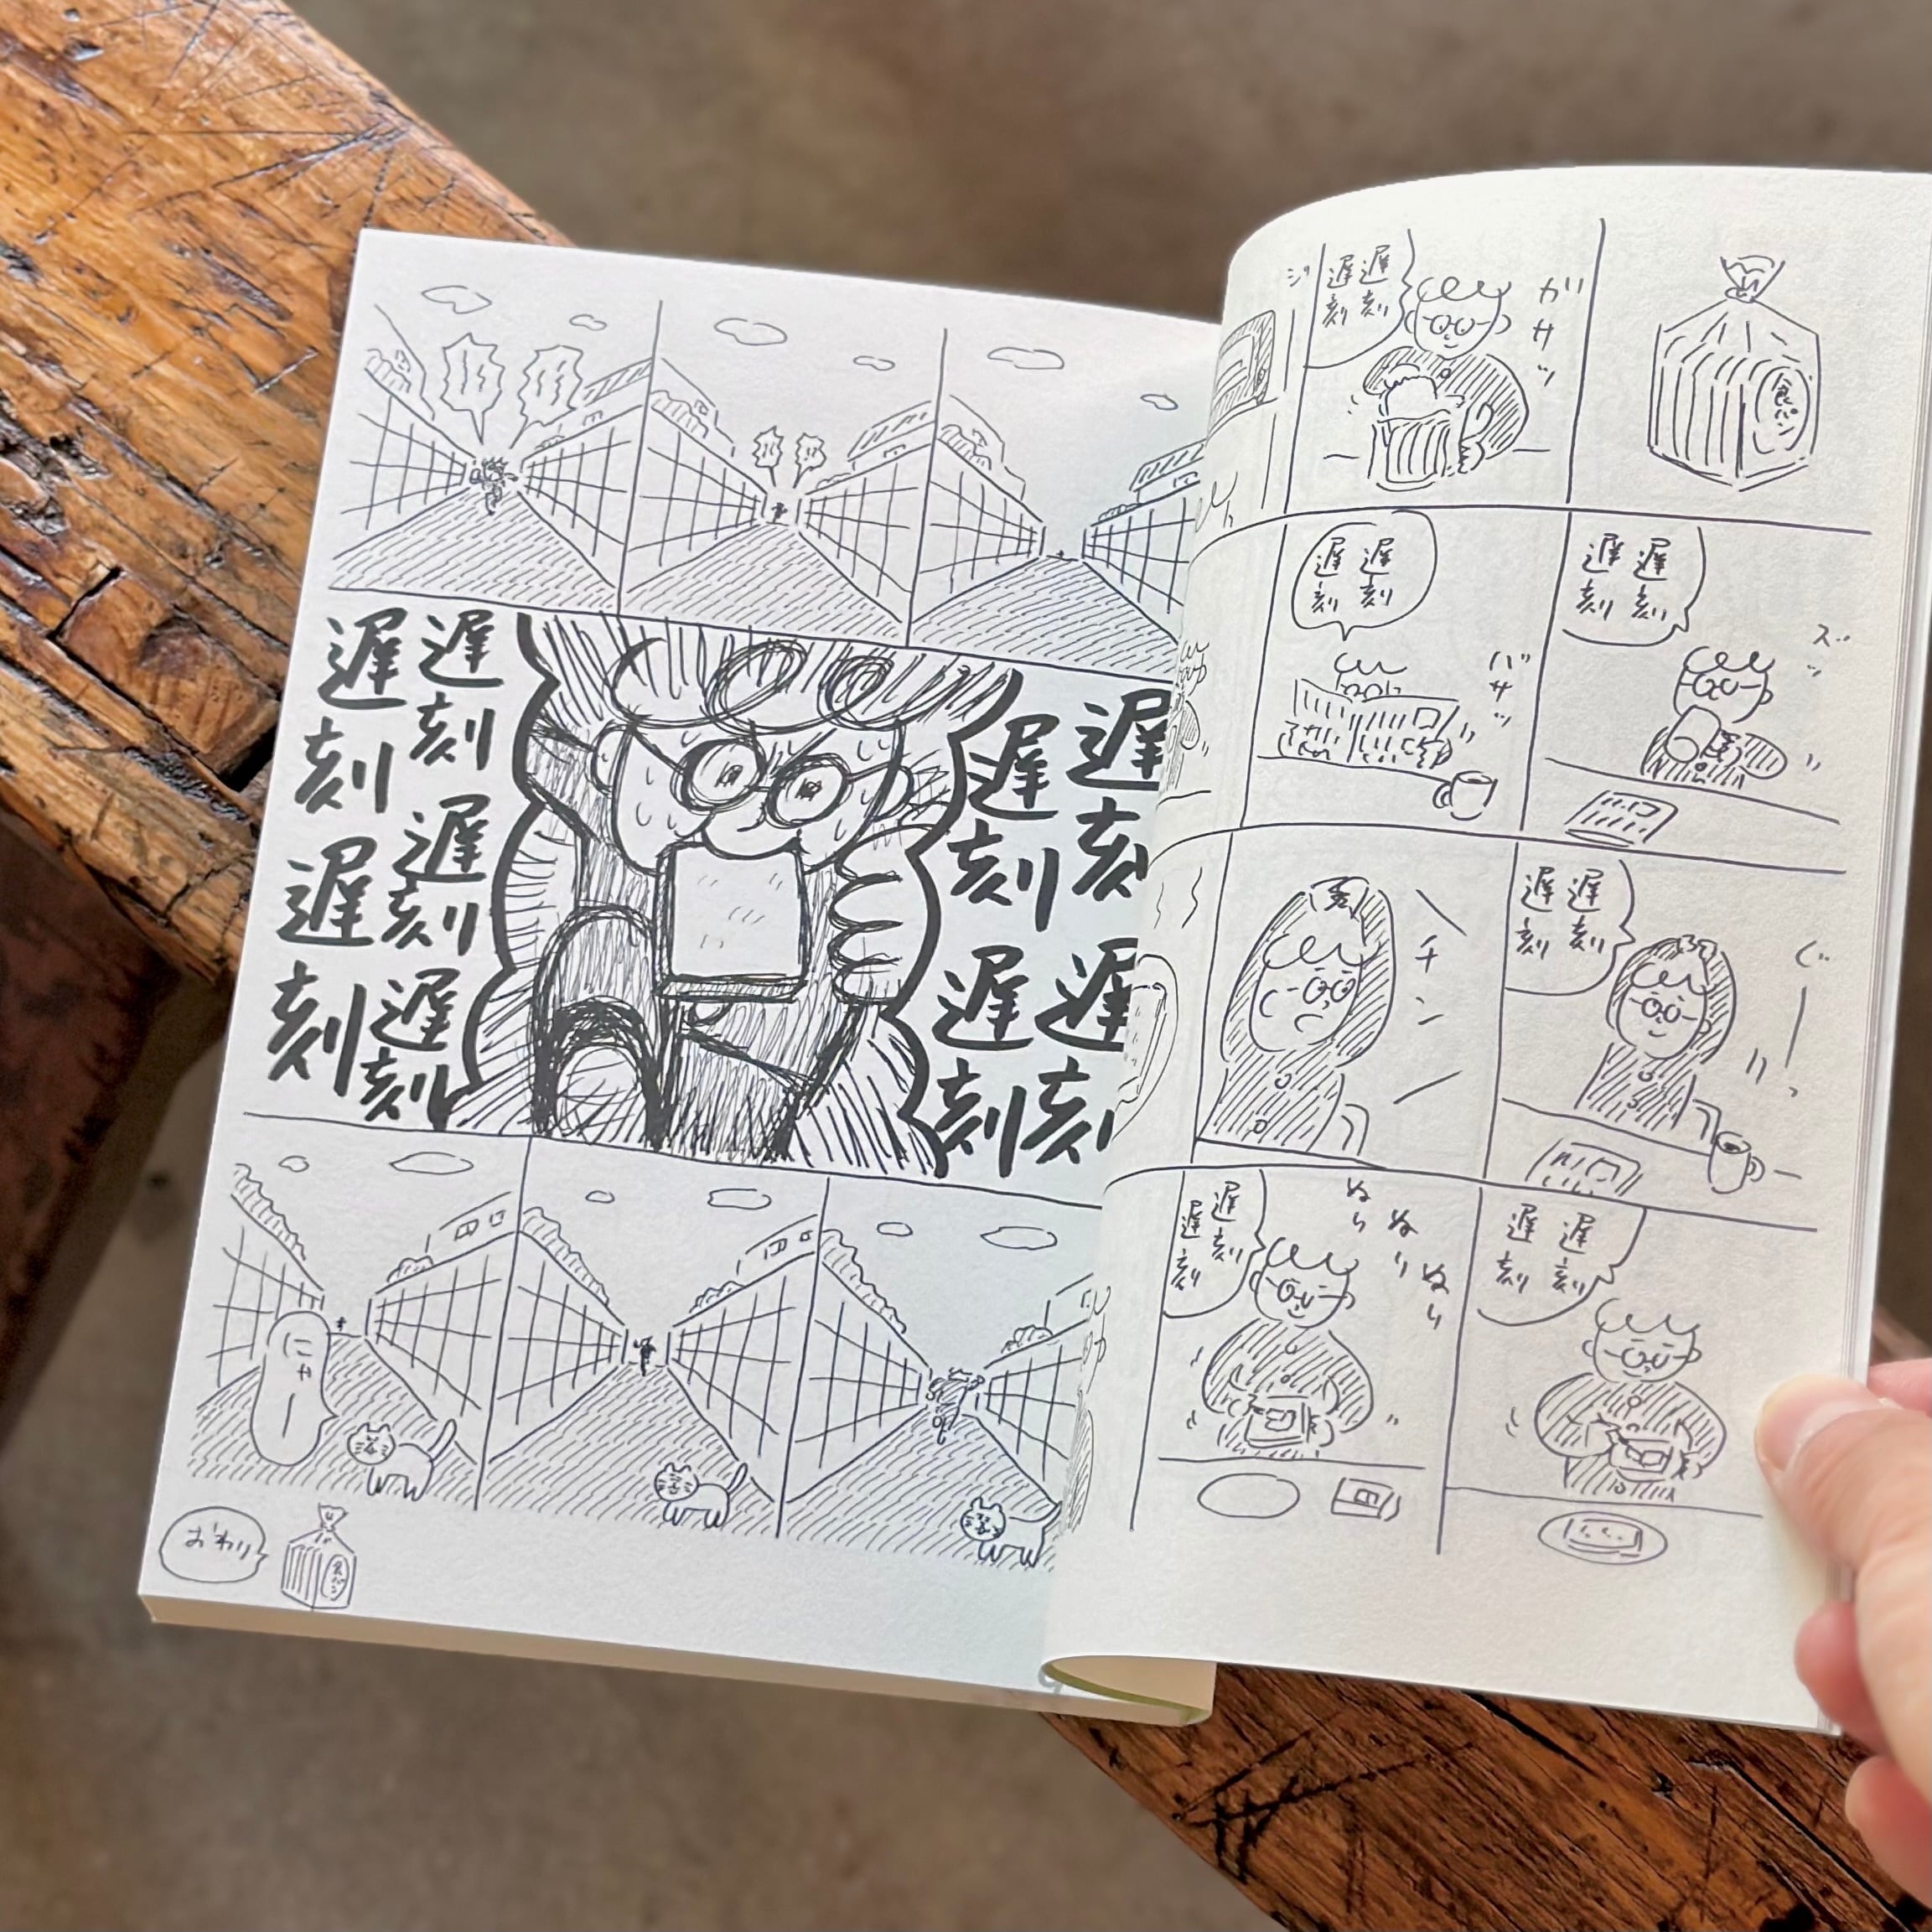 食パン
ガサッ
遅刻
遅刻
ジ
ズッ
遅刻
遅刻
バサッ
遅刻
遅刻
ぐーっ
遅刻
遅刻
チン
遅刻
遅刻
ぬり
ぬり
ぬり
遅刻
遅刻
遅刻遅刻
遅刻遅刻
遅刻遅刻遅刻
遅刻遅刻
にゃー
食パン
おわり